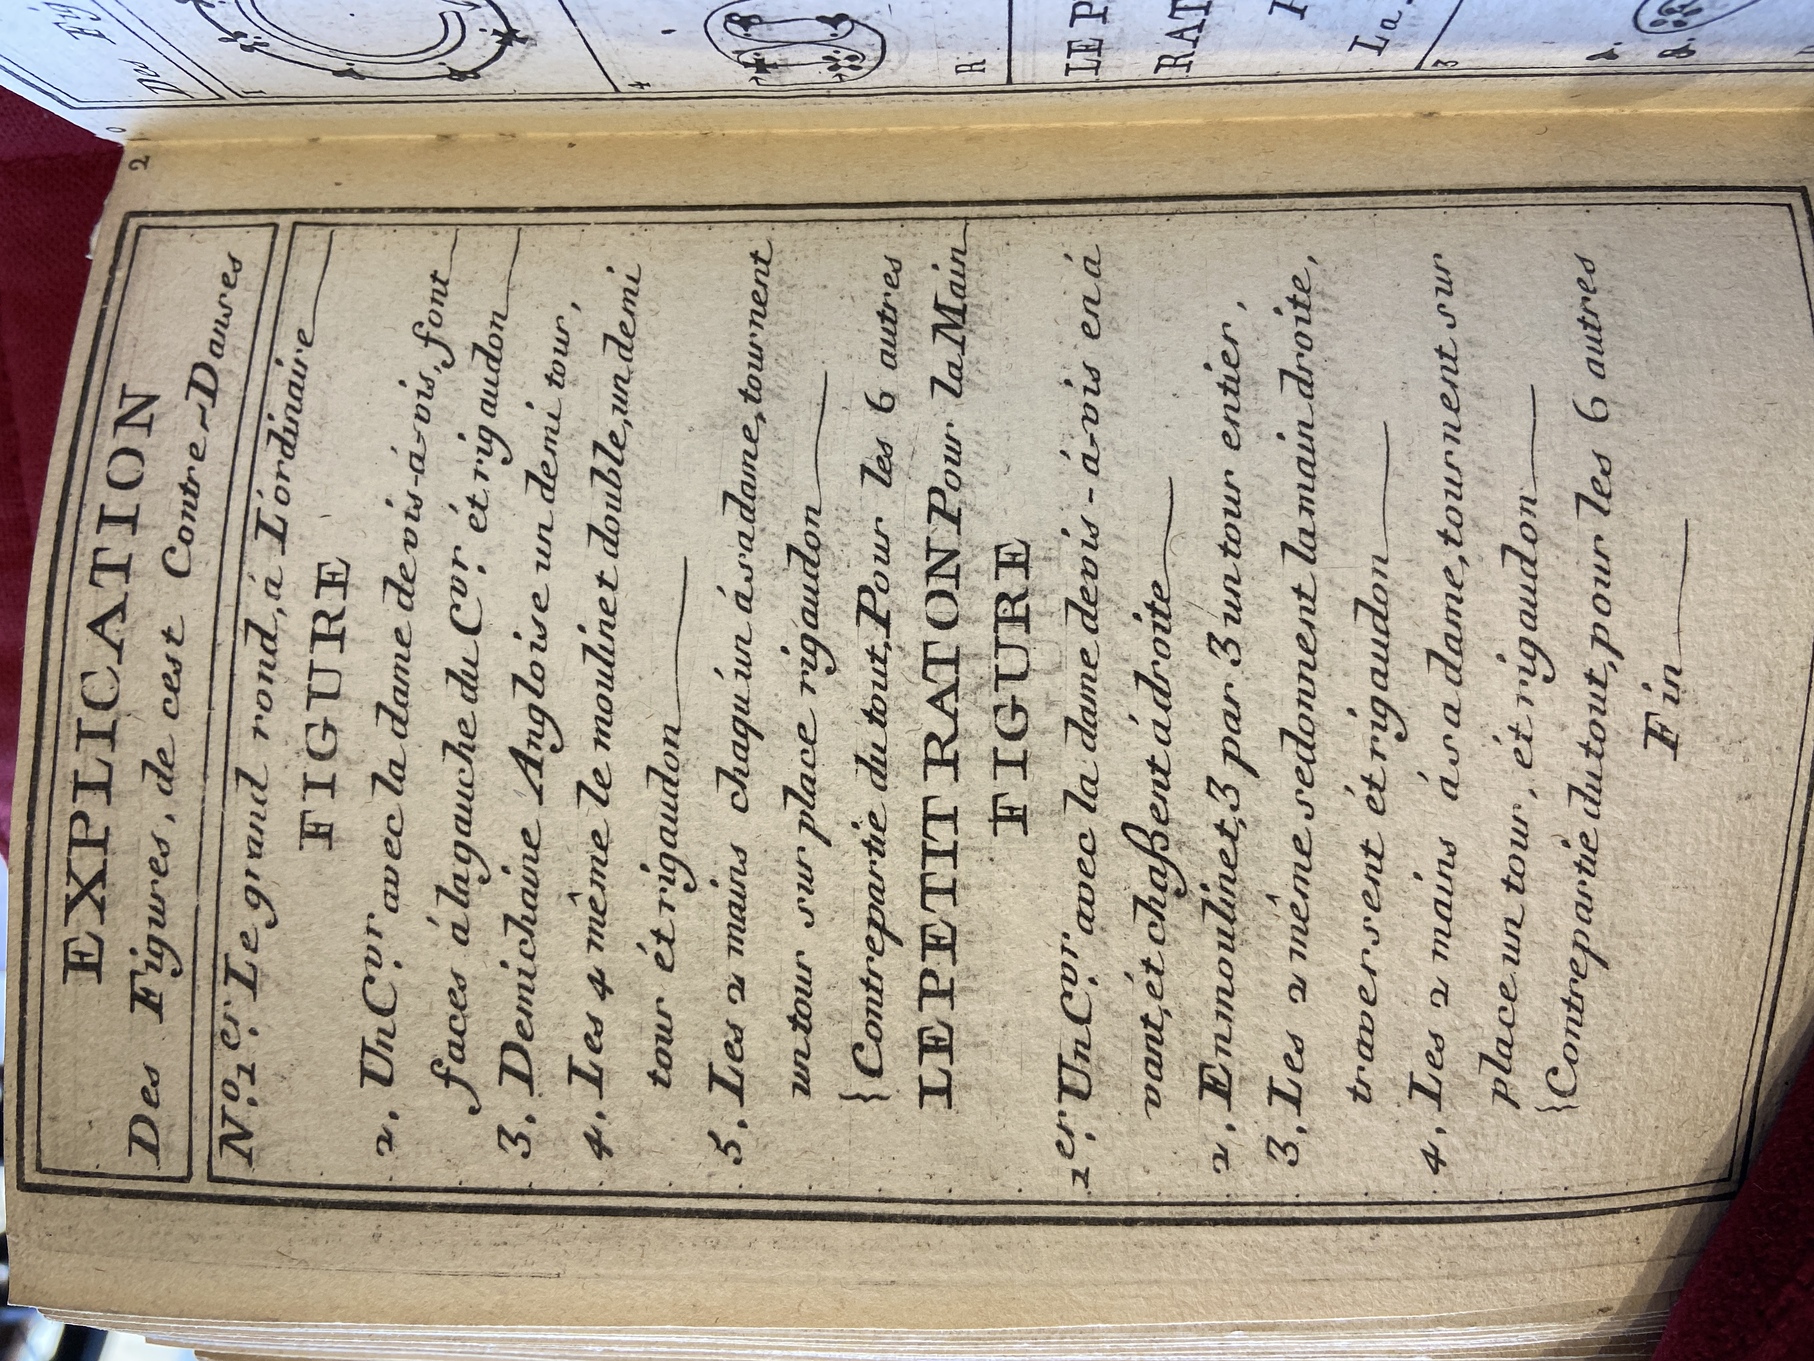 2
EXPLICATION
Des Figures, de cest Contre-Danses
N.º 1.er Le grand rond, á L'ordinaire
FIGURE
2. Un C.or avec la dame de vis-á-vis, font
faces á la gauche du C.or ét rigaudon
3. Demi chaine Angloise un demi tour,
4. Les 4 même le moulinet double, un demi
tour ét rigaudon
5. Les 2 mains chaqu'un á sa dame, tournent
un tour sur place rigaudon
{Contrepartie du tout, Pour les 6 autres
LE PETIT RATON Pour la Main
FIGURE
1.er Un C.or avec la dame de vis-á-vis en á
vant, ét chaßent á droite
2. En moulinet, 3 par 3 un tour entier,
3. Les 2 même se donnent la main droite,
traversent ét rigaudon
4. Les 2 mains á sa dame, tournent sur
place un tour, ét rigaudon
{Contrepartie du tout, pour les 6 autres
Fin
Des Fig
1
4
R
LE P
RAT
La
3